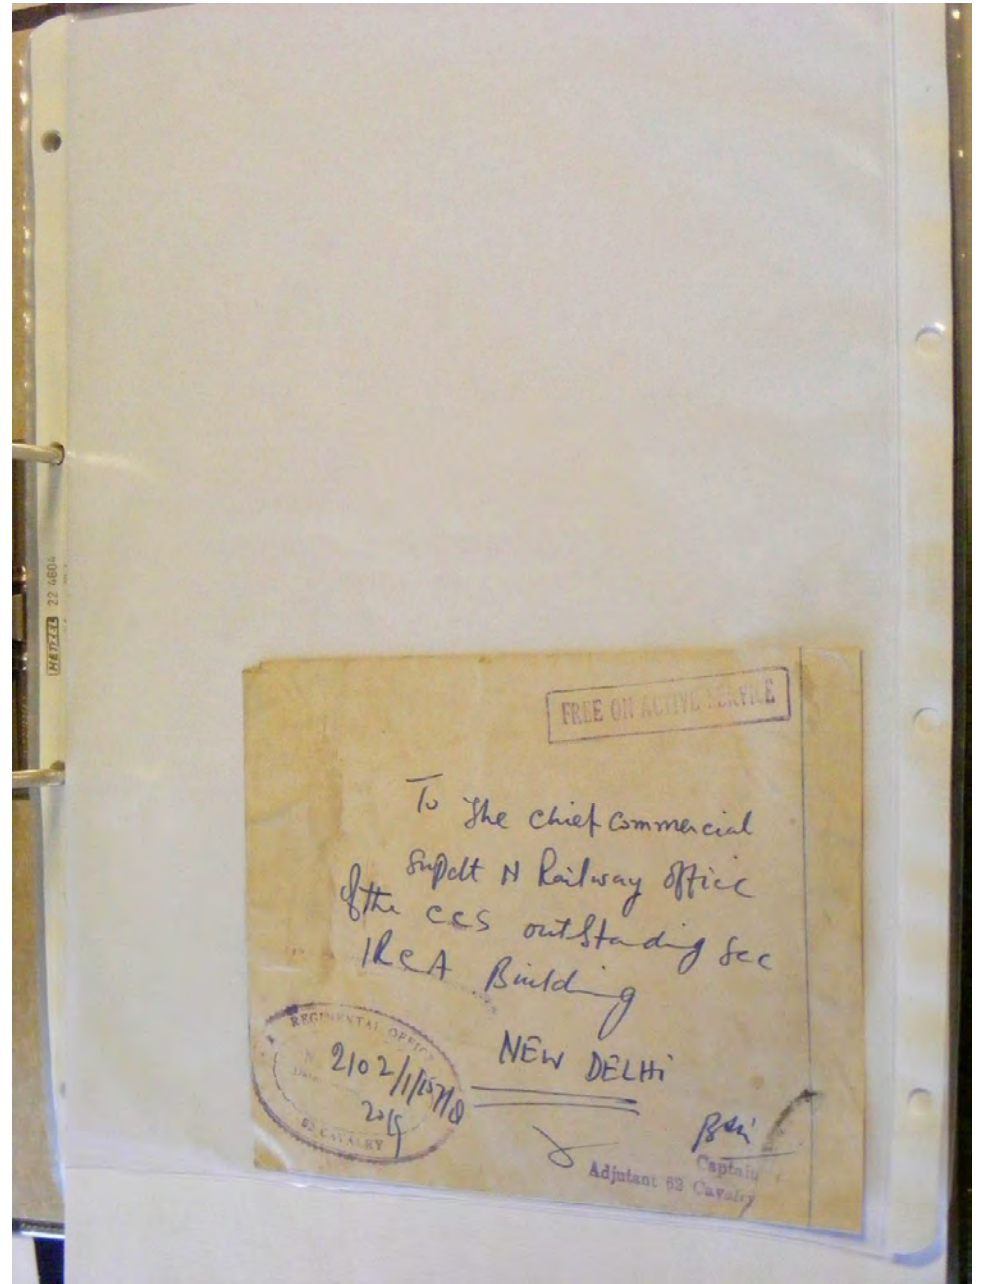 HERZEL 22 4604
FREE ON ACTIVE SERVICE
To
The chief Commercial
Supdt N Railway office
of the CCS outstanding Sec
IRCA Building
NEW DELHi
REGIMENTAL OFFICE
2102/1/
62 CAVALRY
Captain
Adjutant 62 Cavalry